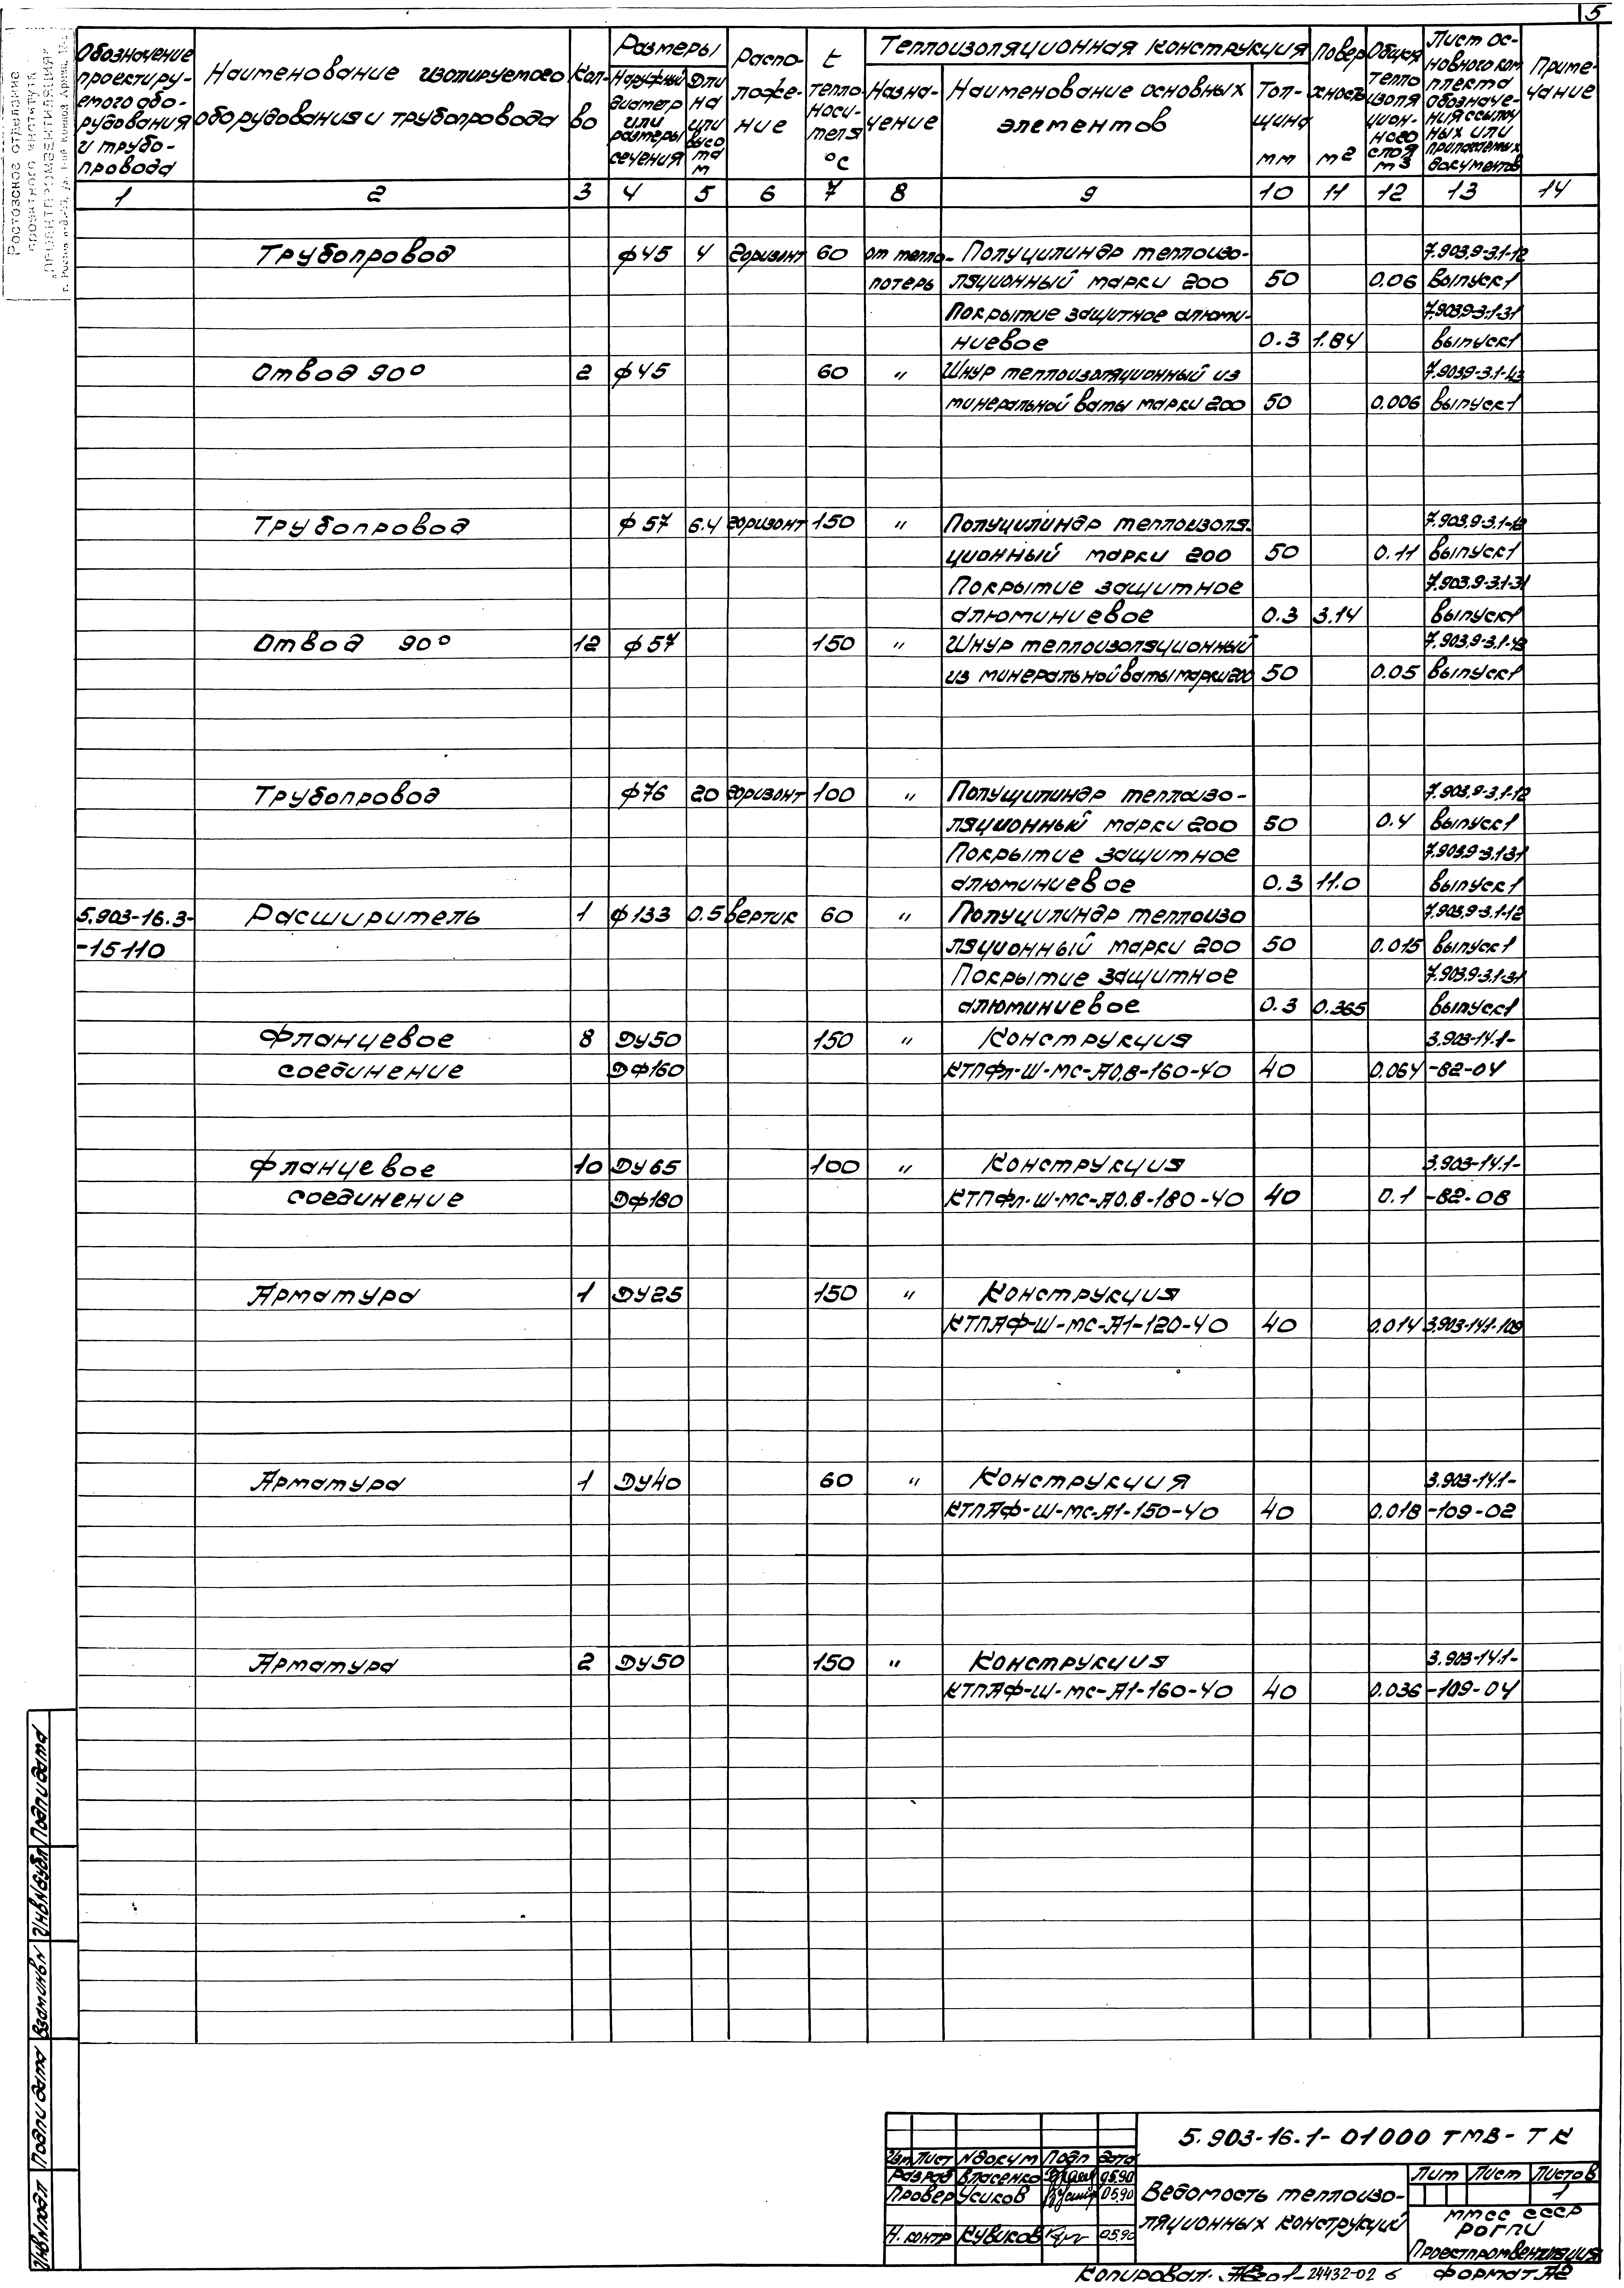 5
Ростовское отделение
проектного института
„ПРОЕКТПРОМВЕНТИЛЯЦИЯ"
Обозначение проектируемого оборудования и трубопровода | Наименование изолируемого оборудования и трубопровода | Кол-во | Размеры | Располо­жение | t теплоносителя °С | Теплоизоляционная конструкция | Поверхность м2 | Общая теплоизоляционного слоя м3 | Лист основного комплекта обозначения ссылочных или прилагаемых документов | Примечание
Наружный диаметр или размеры сечения | Длина или высота м | Назначение | Наименование основных элементов | Толщина мм
1 2 3 4 5 6 7 8 9 10 11 12 13 14
Трубопровод ф45 4 горизонт 60 от тепло- Полуцилиндр теплоизо- 7.903.9-3.1-12
потерь ляционный марки 200 50 0.06 выпуск1
Покрытие защитное алюми- 7.903.9-3.1-31
ниевое 0.3 1.84 выпуск1
Отвод 90° 2 ф45 60 " Шнур теплоизоляционный из 7.903.9-3.1-43
минеральной ваты марки 200 50 0.006 выпуск1
Трубопровод ф57 6.4 горизонт 150 " Полуцилиндр теплоизоля- 7.903.9-3.1-12
ционный марки 200 50 0.11 выпуск1
Покрытие защитное 7.903.9-3.1-31
алюминиевое 0.3 3.14 выпуск1
Отвод 90° 12 ф57 150 " Шнур теплоизоляционный 7.903.9-3.1-43
из минеральной ваты марки 200 50 0.05 выпуск1
Трубопровод ф76 20 горизонт 100 " Полуцилиндр теплоизо- 7.903.9-3.1-12
ляционный марки 200 50 0.4 выпуск1
Покрытие защитное 7.903.9-3.1-31
алюминиевое 0.3 11.0 выпуск1
5.903-16.3- Расширитель 1 ф133 0.5 вертик 60 " Полуцилиндр теплоизо 7.903.9-3.1-12
-15110 ляционный марки 200 50 0.015 выпуск1
Покрытие защитное 7.903.9-3.1-31
алюминиевое 0.3 0.365 выпуск1
Фланцевое 8 DУ50 150 " Конструкция 3.903-14.1-
соединение Dф160 КТПФл-Ш-МС-А0,8-160-40 40 0.064 -82-04
Фланцевое 10 DУ65 100 " Конструкция 3.903-14.1-
соединение Dф180 КТПФл-Ш-МС-А0,8-180-40 40 0.1 -82-08
Арматура 1 DУ25 150 " Конструкция
КТПАФ-Ш-МС-А1-120-40 40 0.014 3.903-14.1-109
Арматура 1 DУ40 60 " Конструкция 3.903-14.1-
КТПАФ-Ш-МС-А1-150-40 40 0.018 -109-02
Арматура 2 DУ50 150 " Конструкция 3.903-14.1-
КТПАФ-Ш-МС-А1-160-40 40 0.036 -109-04
Инв№подл Подп и дата Взам инв№ Инв№дубл Подп и дата
5.903-16.1-01000 ТМВ-ТК
Изм Лист №докум Подп Дата
Разраб Власенко 05.90
Провер Усиков 05.90
Н.контр Кувиков 05.90
Ведомость теплоизо-
ляционных конструкций
Лит Лист Листов
1
ММСС СССР
РОГПИ
Проектпромвентиляция
Копировал. 24432-02 6 Формат А2